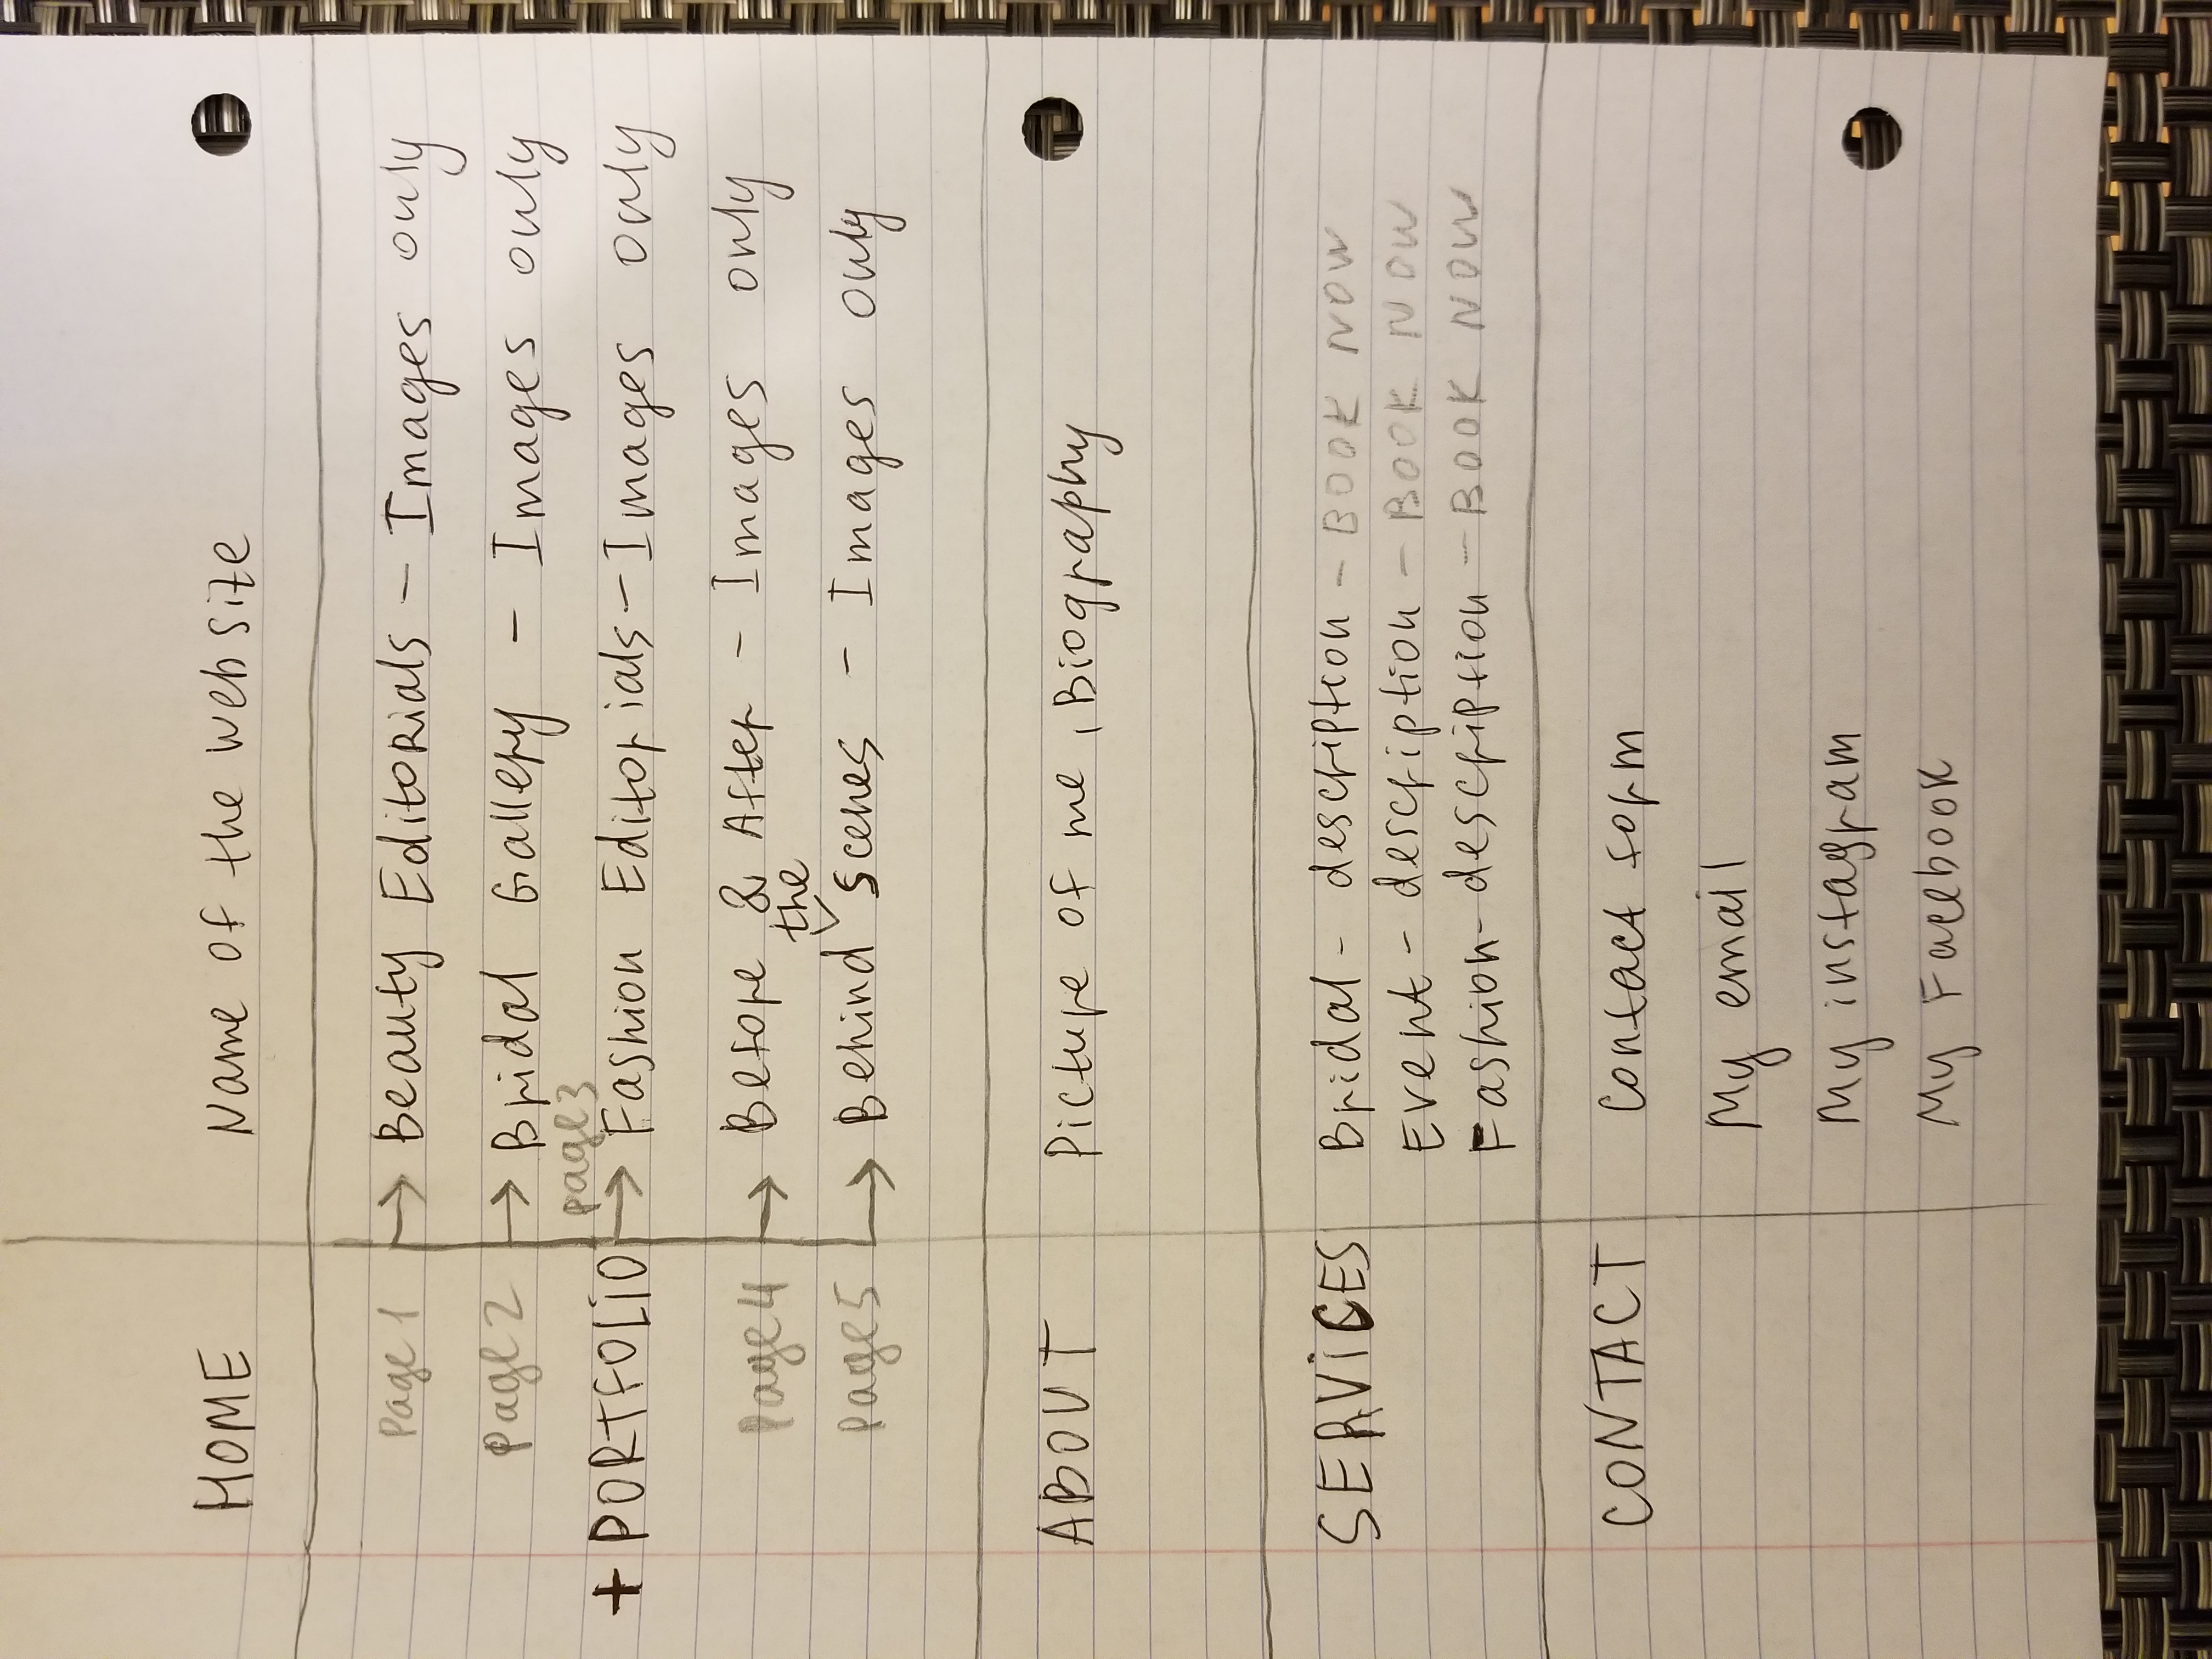 HOME Name of the website
Page 1 → Beauty Editorials - Images only
Page 2 → Bridal Gallery - Images only
page 3
+ PORTFOLIO → Fashion Editorials - Images only
Page 4 → Before & After - Images only
the
Page 5 → Behind scenes - Images only
ABOUT Picture of me, Biography
SERVICES Bridal - description - BOOK NOW
Event - description - BOOK NOW
Fashion - description - BOOK NOW
CONTACT Contact form
My email
My instagram
My Facebook